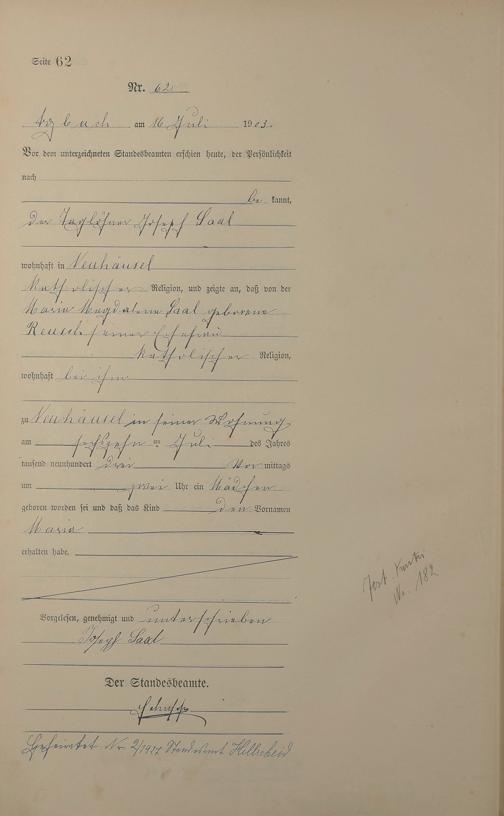 Seite 62
Nr. 62
Arzbach am 16 Juli 1903.
Vor dem unterzeichneten Standesbeamten erschien heute, der Persönlichkeit
nach
be kannt,
der Taglöhner Joseph Saal
wohnhaft in Neuhäusel
katholischer Religion, und zeigte an, daß von der
Maria Magdalena Saal geborene
Reusch seiner Ehefrau
katholischer Religion,
wohnhaft bei ihm
zu Neuhäusel in seiner Wohnung
am sechszehn ten Juli des Jahres
tausend neunhundert drei Vor mittags
um zwei Uhr ein Mädchen
geboren worden sei und daß das Kind den Vornamen
Maria
erhalten habe.
Vorgelesen, genehmigt und unterschrieben
Joseph Saal
Der Standesbeamte.
Geheiratet Nr 2/1927 Standesamt
No. 182